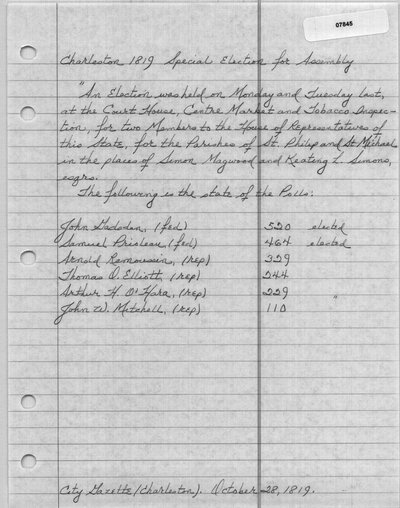 07845
Charleston 1819 Special Election for Assembly
"An Election was held on Monday and Tuesday last,
at the Court House, Centre Market and Tobacco Inspec-
tion, for two Members to the House of Representatives of
this State, for the Parishes of St. Philip and St. Michael
in the places of Simon Magwood and Keating L. Simons,
esqrs.
The following is the state of the Polls:
John Gadsden, (fed) 520 elected
Samuel Prioleau (fed) 464 elected
Arnold Remoussin, (rep) 329
Thomas O. Elliott, (rep) 244
Arthur H. O'Hara, (rep) 229 "
John W. Mitchell, (rep) 110
City Gazette (Charleston). October 28, 1819.